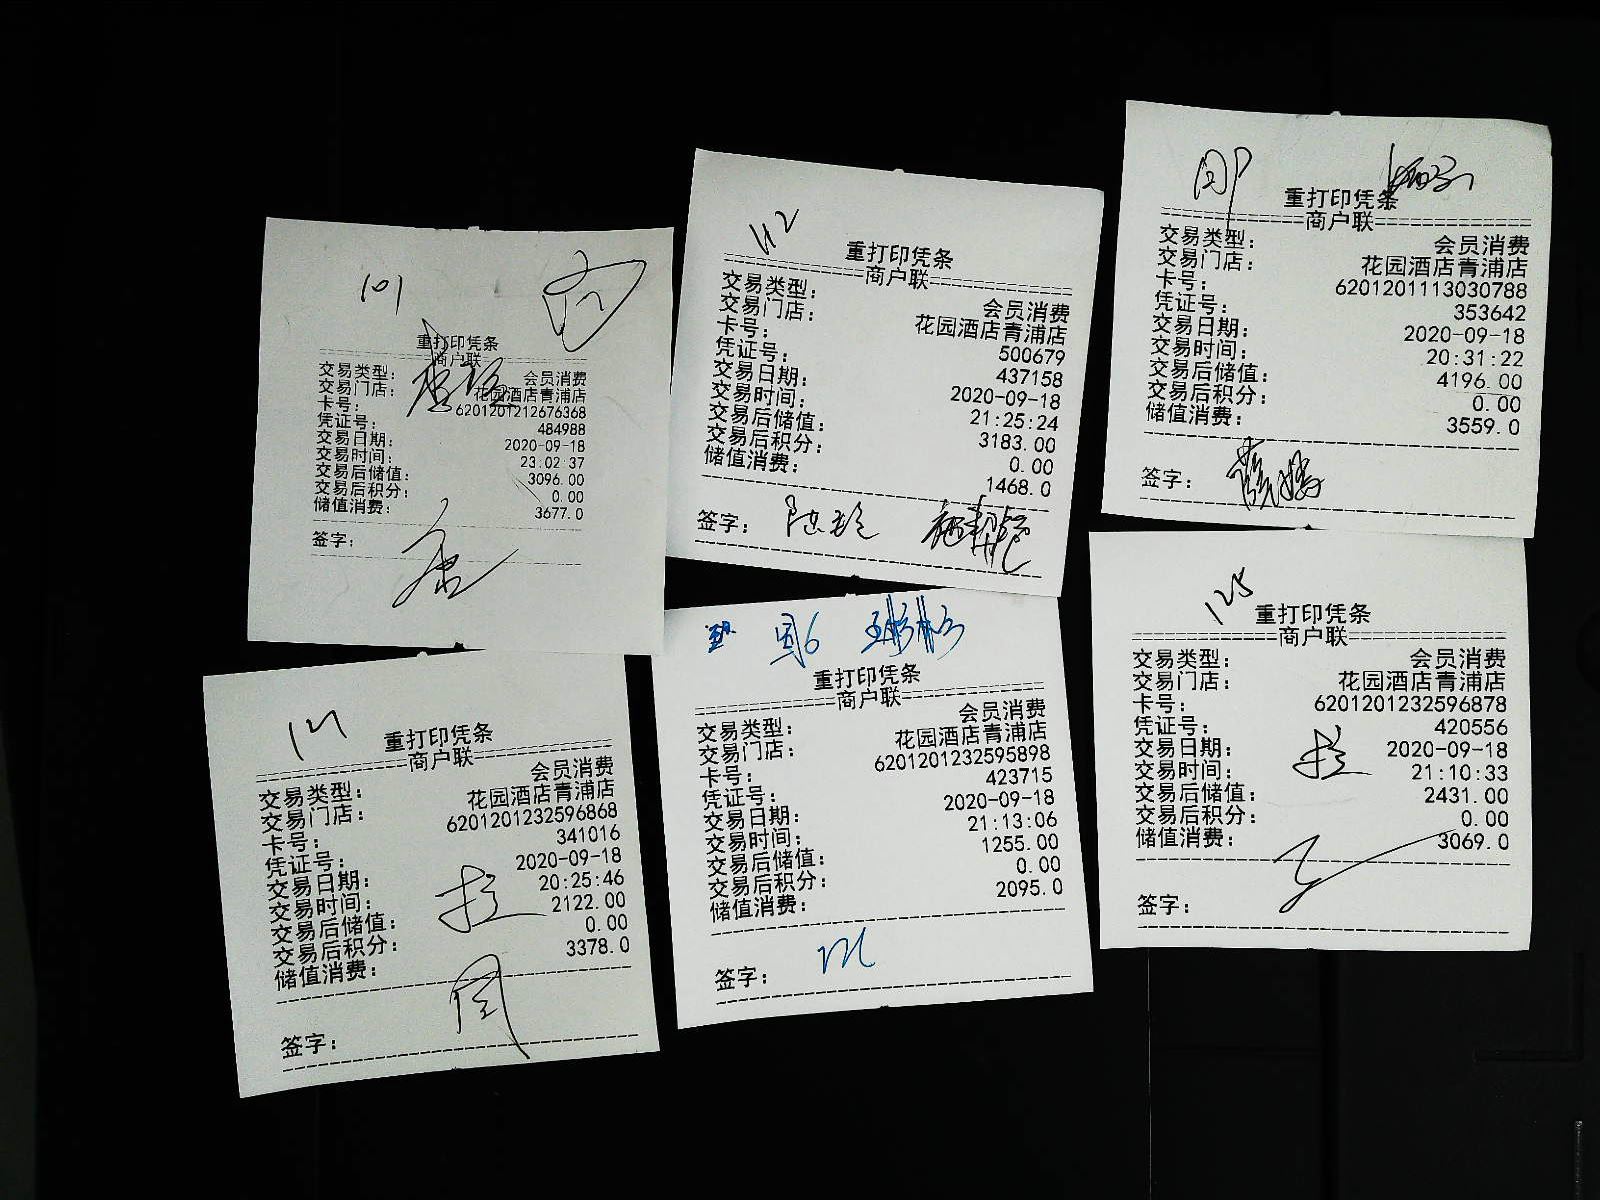 101
重打印凭条
商户联
交易类型: 会员消费
交易门店: 花园酒店青浦店
卡号: 6201201212676368
凭证号: 484988
交易日期: 2020-09-18
交易时间: 23:02:37
交易后储值: 3096.00
交易后积分: 0.00
储值消费: 3677.0
签字:
112
重打印凭条
商户联
交易类型: 会员消费
交易门店: 花园酒店青浦店
卡号: 500679
凭证号: 437158
交易日期: 2020-09-18
交易时间: 21:25:24
交易后储值: 3183.00
交易后积分: 0.00
储值消费: 1468.0
签字:
重打印凭条
商户联
交易类型: 会员消费
交易门店: 花园酒店青浦店
卡号: 6201201113030788
凭证号: 353642
交易日期: 2020-09-18
交易时间: 20:31:22
交易后储值: 4196.00
交易后积分: 0.00
储值消费: 3559.0
签字:
121
重打印凭条
商户联
交易类型: 会员消费
交易门店: 花园酒店青浦店
卡号: 6201201232596868
凭证号: 341016
交易日期: 2020-09-18
交易时间: 20:25:46
交易后储值: 2122.00
交易后积分: 0.00
储值消费: 3378.0
签字:
重打印凭条
商户联
交易类型: 会员消费
交易门店: 花园酒店青浦店
卡号: 6201201232595898
凭证号: 423715
交易日期: 2020-09-18
交易时间: 21:13:06
交易后储值: 1255.00
交易后积分: 0.00
储值消费: 2095.0
签字:
125
重打印凭条
商户联
交易类型: 会员消费
交易门店: 花园酒店青浦店
卡号: 6201201232596878
凭证号: 420556
交易日期: 2020-09-18
交易时间: 21:10:33
交易后储值: 2431.00
交易后积分: 0.00
储值消费: 3069.0
签字: